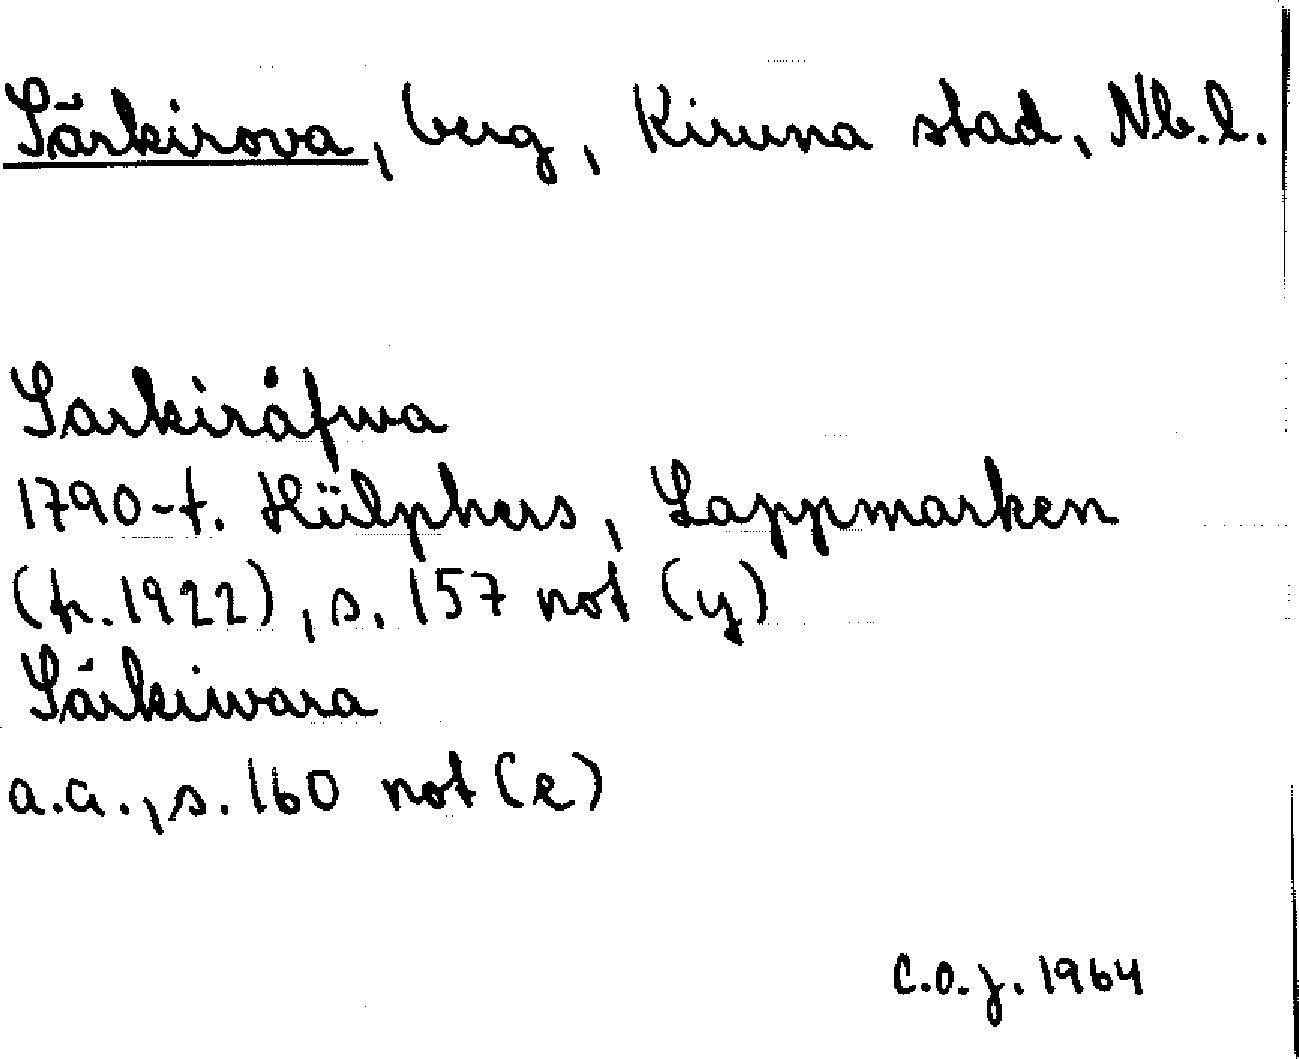 Särkirova, berg, Kiruna stad, Nb.l.
Sarkiråfwa
1790-t. Hülphers, Lappmarken
(tr. 1922), s. 157 not (y)
Särkiwara
a.a., s. 160 not (e)
C.O.J. 1964